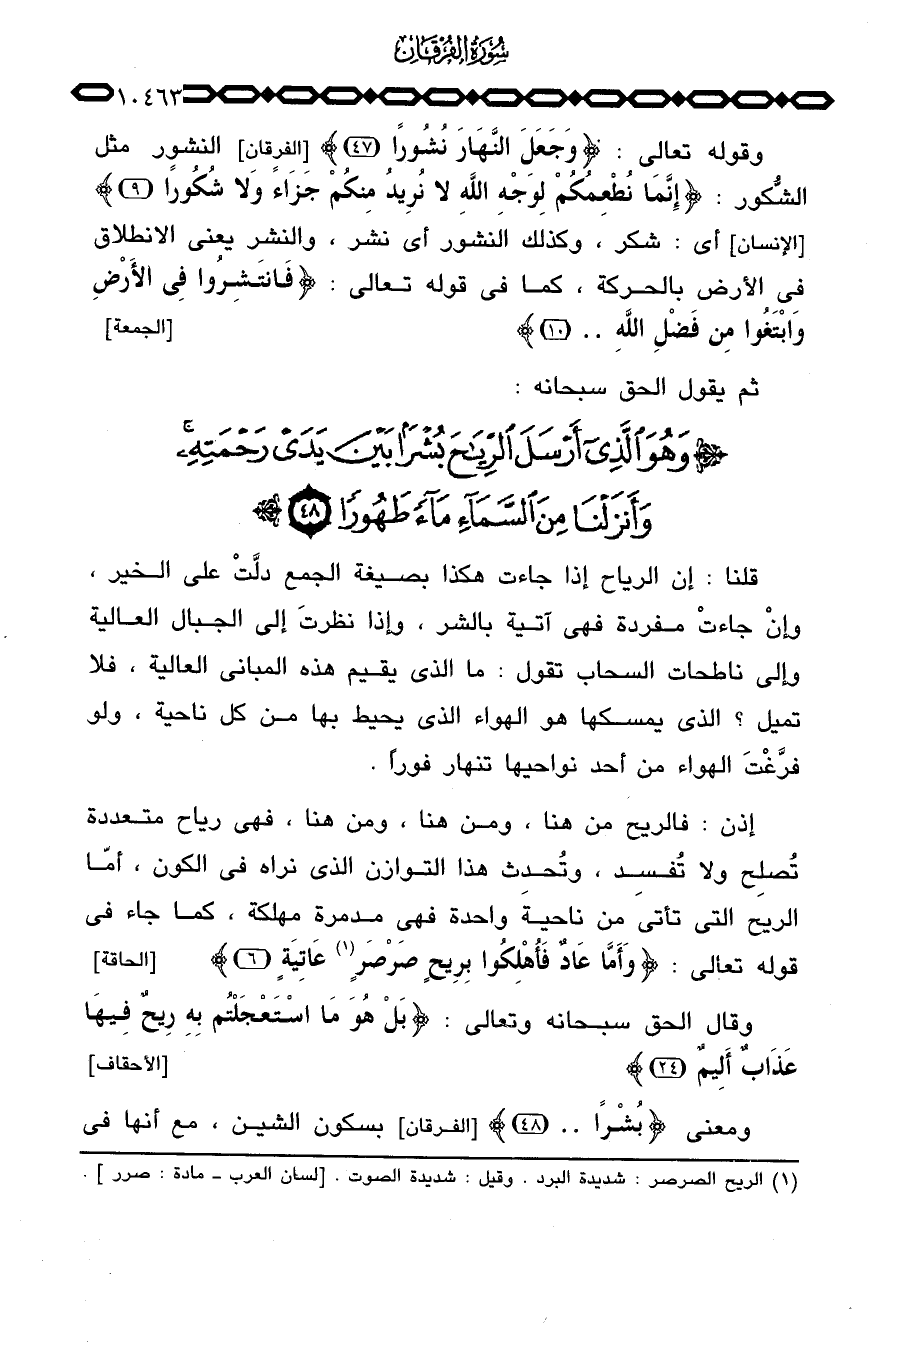 سُورَةُ الفُرْقَانِ
١٠٤٦٣
وقوله تعالى : ﴿ وَجَعَلَ النَّهَارَ نُشُورًا (٤٧)﴾ [الفرقان] النشور مثل
الشُّكور : ﴿إِنَّمَا نُطْعِمُكُمْ لِوَجْهِ اللَّهِ لا نُرِيدُ مِنكُمْ جَزَاءً وَلا شُكُورًا (٩)﴾
[الإنسان] أى : شكر ، وكذلك النشور أى نشر ، والنشر يعنى الانطلاق
فى الأرض بالحركة ، كما فى قوله تعالى : ﴿ فَانتَشِرُوا فِى الأَرْضِ
وَابْتَغُوا مِن فَضْلِ اللَّهِ .. (١٠)﴾ [الجمعة]
ثم يقول الحق سبحانه :
﴿ وَهُوَ ٱلَّذِىٓ أَرْسَلَ ٱلرِّيَٰحَ بُشْرًۢا بَيْنَ يَدَىْ رَحْمَتِهِۦ ۚ
وَأَنزَلْنَا مِنَ ٱلسَّمَآءِ مَآءً طَهُورًا ٤٨ ﴾
قلنا : إن الرياح إذا جاءت هكذا بصيغة الجمع دلَّتْ على الخير ،
وإنْ جاءتْ مفردة فهى آتية بالشر ، وإذا نظرتَ إلى الجبال العالية
وإلى ناطحات السحاب تقول : ما الذى يقيم هذه المبانى العالية ، فلا
تميل ؟ الذى يمسكها هو الهواء الذى يحيط بها من كل ناحية ، ولو
فرَّغْتَ الهواء من أحد نواحيها تنهار فوراً .
إذن : فالريح من هنا ، ومن هنا ، ومن هنا ، فهى رياح متعددة
تُصلِح ولا تُفسِد ، وتُحدث هذا التوازن الذى نراه فى الكون ، أمّا
الريح التى تأتى من ناحية واحدة فهى مدمرة مهلكة ، كما جاء فى
قوله تعالى : ﴿ وَأَمَّا عَادٌ فَأُهْلِكُوا بِرِيحٍ صَرْصَرٍ (١) عَاتِيَةٍ (٦)﴾ [الحاقة]
وقال الحق سبحانه وتعالى : ﴿بَلْ هُوَ مَا اسْتَعْجَلْتُم بِهِ رِيحٌ فِيهَا
عَذَابٌ أَلِيمٌ (٢٤)﴾ [الأحقاف]
ومعنى ﴿ بُشْرًا .. (٤٨)﴾ [الفرقان] بسكون الشين ، مع أنها فى
(١) الريح الصرصر : شديدة البرد . وقيل : شديدة الصوت . [لسان العرب - مادة : صرر ] .